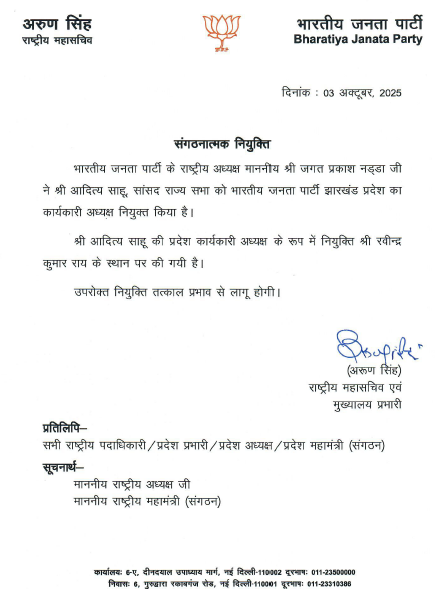 अरुण सिंह
राष्ट्रीय महासचिव
भारतीय जनता पार्टी
Bharatiya Janata Party
दिनांक : 03 अक्टूबर, 2025
संगठनात्मक नियुक्ति
भारतीय जनता पार्टी के राष्ट्रीय अध्यक्ष माननीय श्री जगत प्रकाश नड्डा जी
ने श्री आदित्य साहू, सांसद राज्य सभा को भारतीय जनता पार्टी झारखंड प्रदेश का
कार्यकारी अध्यक्ष नियुक्त किया है।
श्री आदित्य साहू की प्रदेश कार्यकारी अध्यक्ष के रूप में नियुक्ति श्री रवीन्द्र
कुमार राय के स्थान पर की गयी है।
उपरोक्त नियुक्ति तत्काल प्रभाव से लागू होगी।
(अरूण सिंह)
राष्ट्रीय महासचिव एवं
मुख्यालय प्रभारी
प्रतिलिपि–
सभी राष्ट्रीय पदाधिकारी/प्रदेश प्रभारी/प्रदेश अध्यक्ष/प्रदेश महामंत्री (संगठन)
सूचनार्थ–
माननीय राष्ट्रीय अध्यक्ष जी
माननीय राष्ट्रीय महामंत्री (संगठन)
कार्यालयः 6-ए, दीनदयाल उपाध्याय मार्ग, नई दिल्ली-110002 दूरभाषः 011-23500000
निवासः 6, गुरुद्वारा रकाबगंज रोड, नई दिल्ली-110001 दूरभाषः 011-23310386